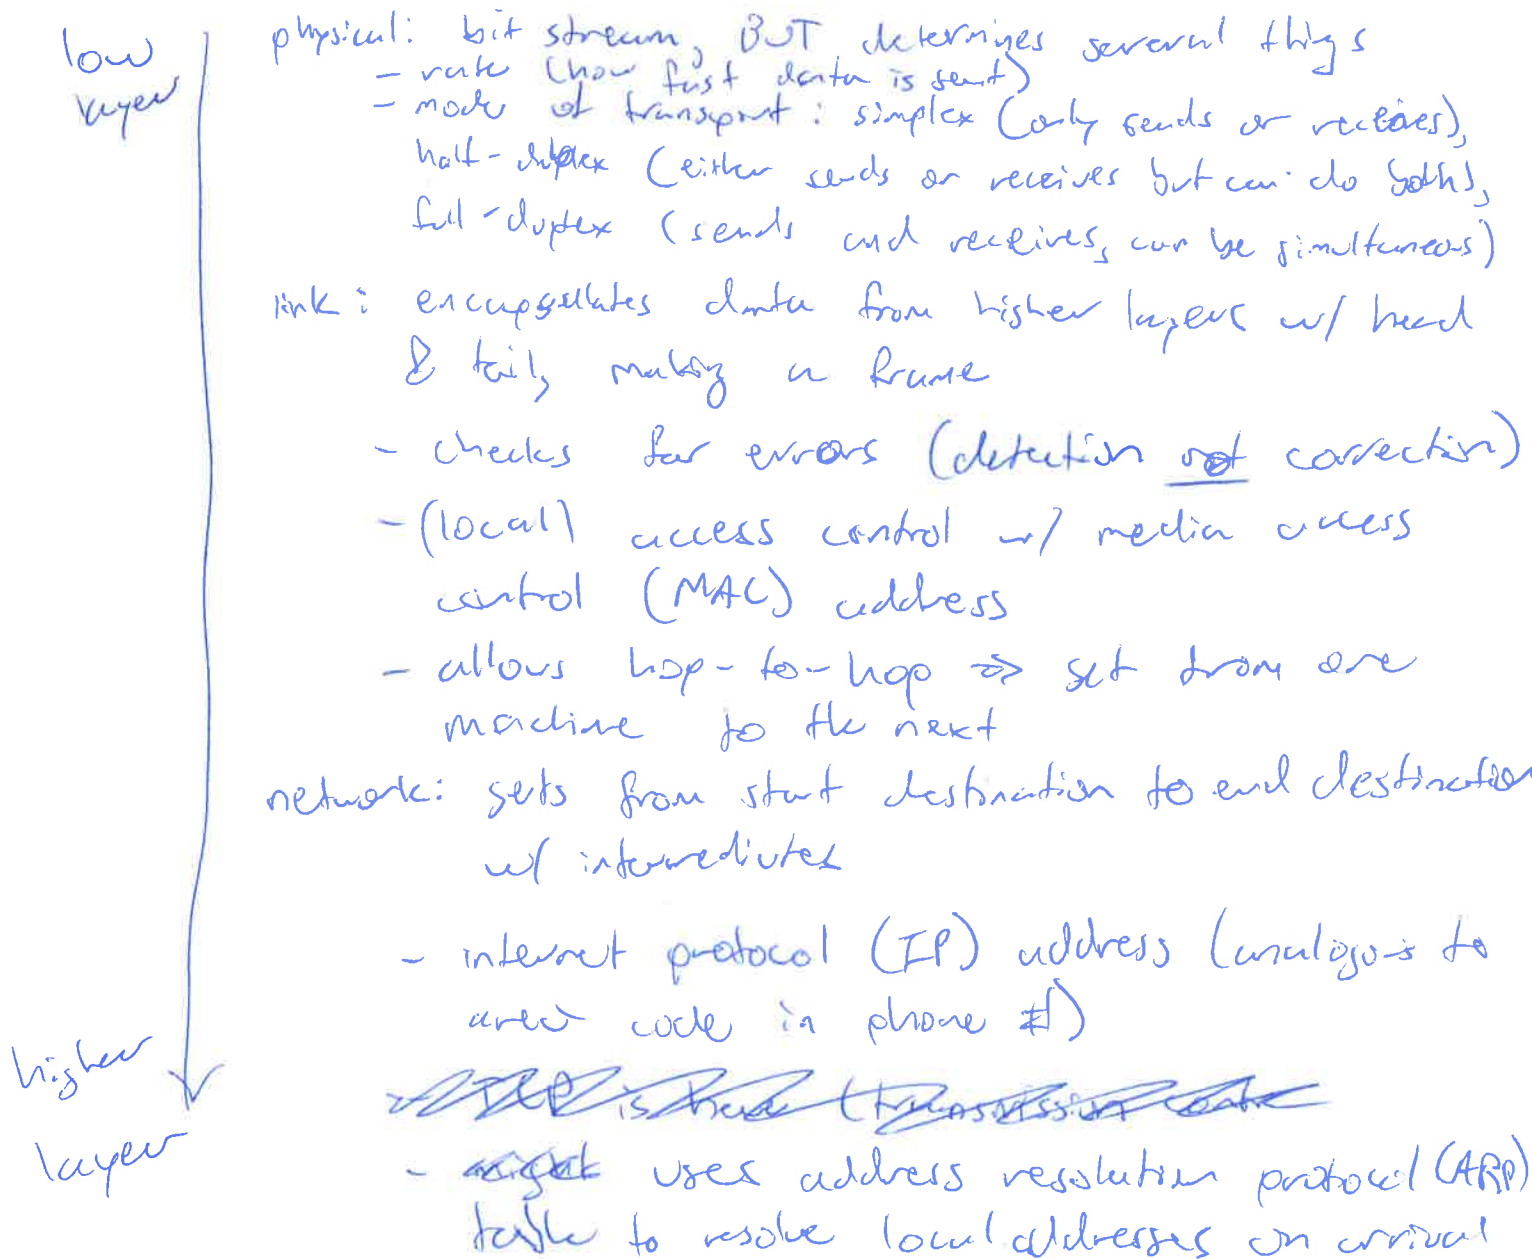 low
layer
physical: bit stream, BUT determines several things
- rate (how fast data is sent)
- mode of transport: simplex (only sends or receives),
half-duplex (either sends or receives but can do both),
full-duplex (sends and receives, can be simultaneous)
link: encapsulates data from higher layers w/ head
& tail, making a frame
- checks for errors (detection not correction)
- (local) access control w/ media access
control (MAC) address
- allows hop-to-hop => get from one
machine to the next
network: gets from start destination to end destination
w/ intermediates
- internet protocol (IP) address (analogous to
area code in phone #)
higher
layer
is here (transmission
- uses address resolution protocol (ARP)
table to resolve local addresses on arrival